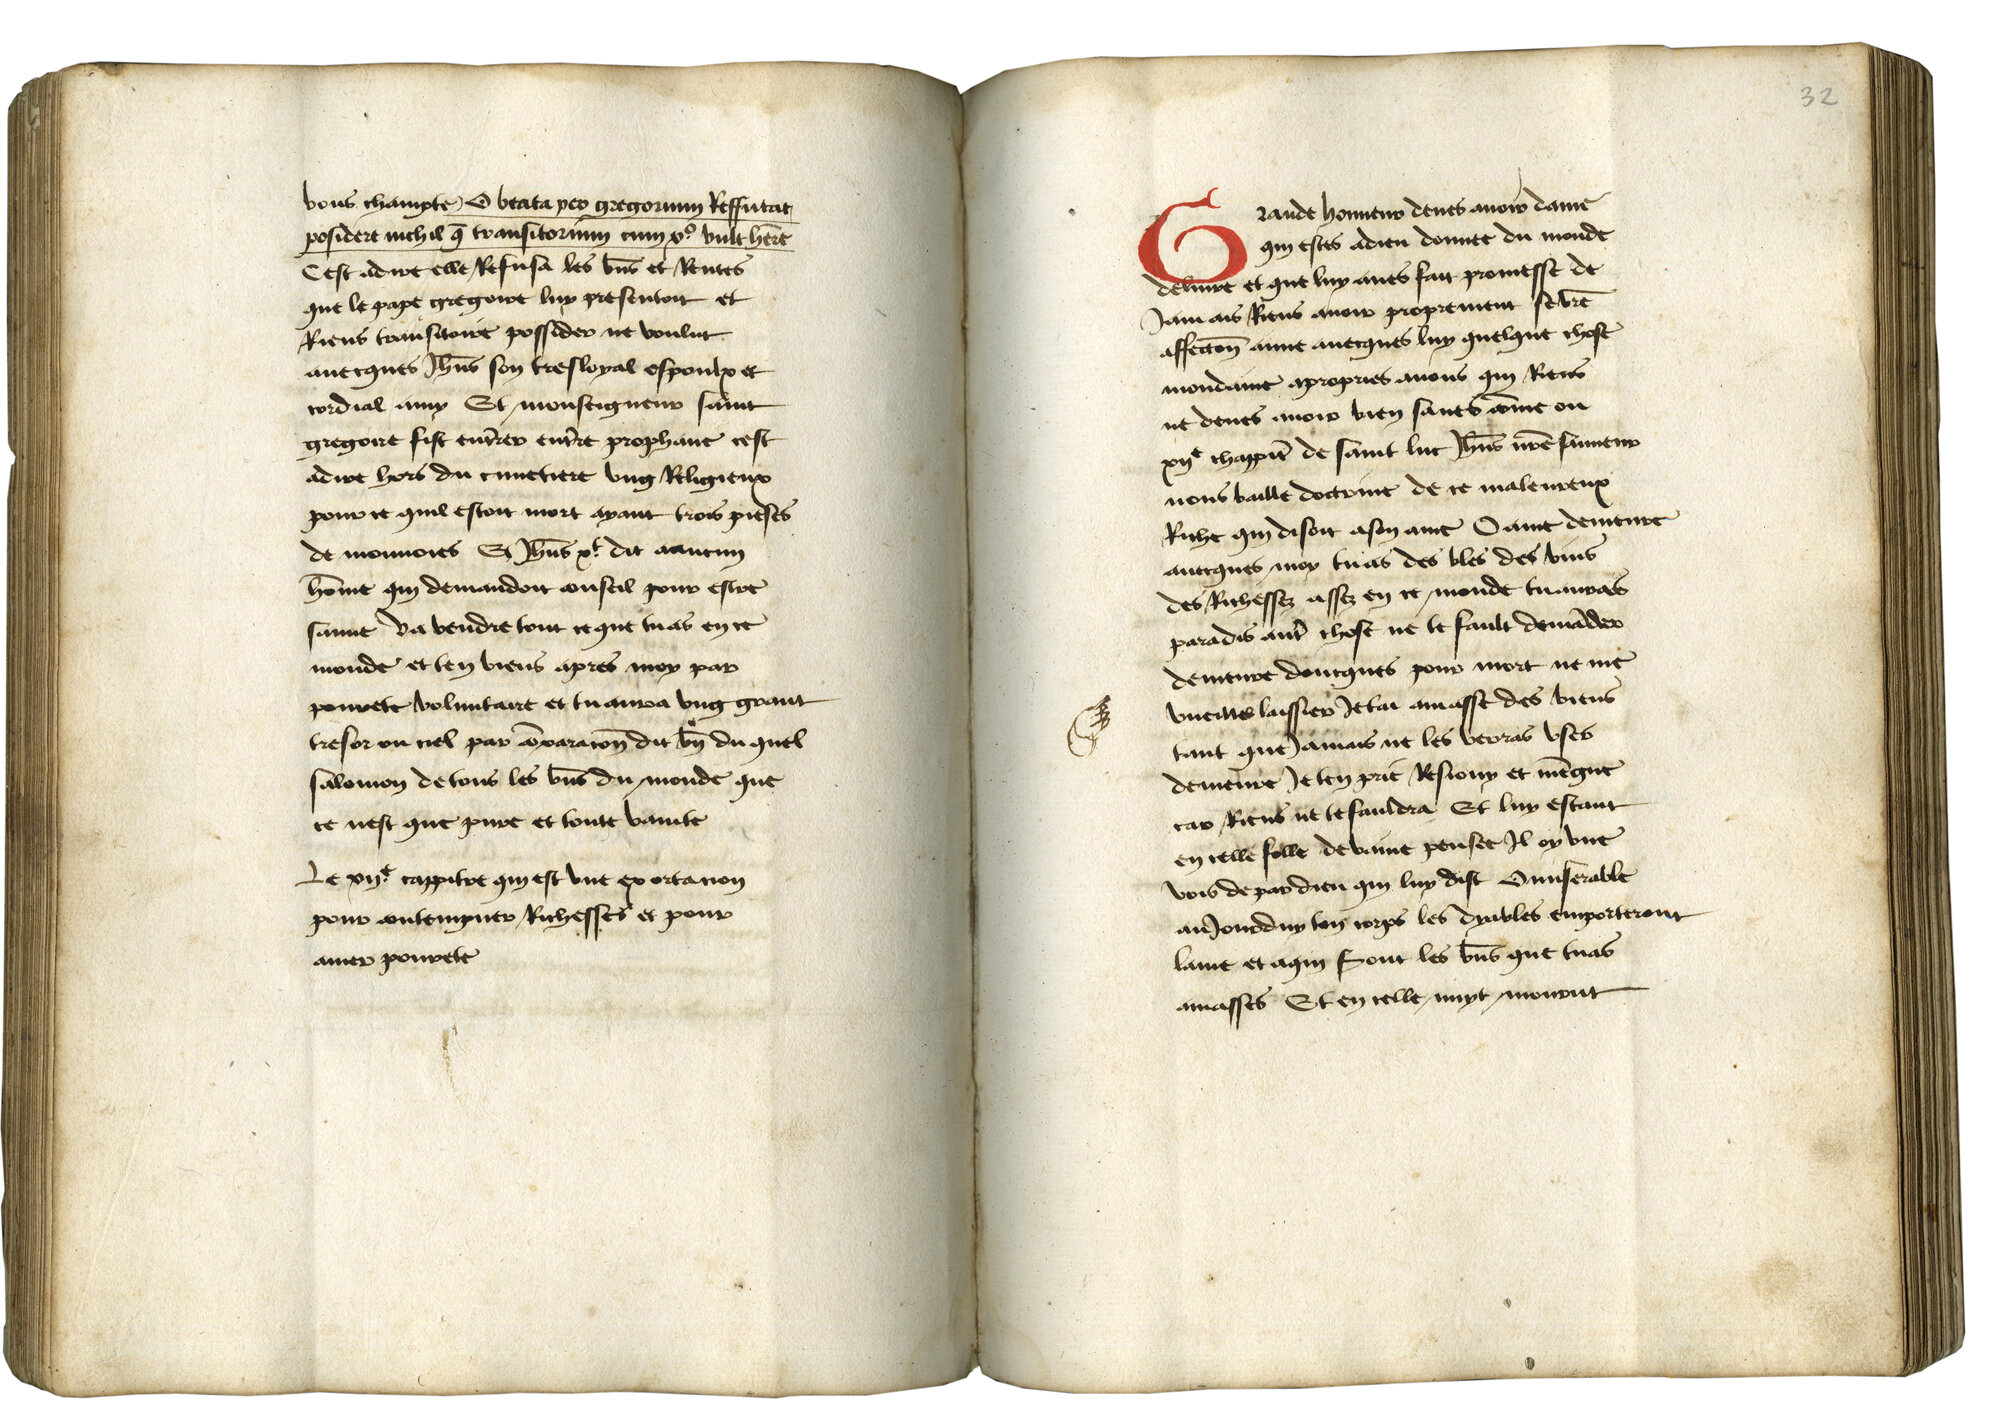 vous champte O beata p̄co gregorium Reffutat
posidere nichil q̄ transitorium cum xᵒ vult hēre
Cest adire elle Refusa les bn̄s et Rentes
que le pape gregoire luy presentoit et
Riens transitoire possider ne voulut
auecques Jhūs son tresloyal espoulx et
cordial amy Et monseigneur saint
gregoire fist enterrer en terre prophane cest
adire hors du cimetiere vng Religieux
pour ce quil estoit mort ayant trois pieses
de monnoies Et Jhūs xᵗ dit aaucun
hōme qui demandoit conseil pour estre
sainct va vendre tout ce que tu as en ce
monde et ten viens apres moy par
pourete voluntaire et tu aura vng grant
tresor ou ciel par cōparacon̄ dit bn̄ du quel
salomon de tous les bn̄s du monde que
ce nest que pure et toute vanite
Le xijᵉ cappitre qui est vne exortacion
pour contempner Richesses et pour
amer pourete
32
Grande honneur deues auoir dame
qui estes adieu donnee du monde
deliure et que luy aues fait promesse de
Jamais Riens auoir proprement se vr̄e
affecton̄ aime auecques luy quelque chose
mondaine apropries auous qui Riens
ne deues auoir bien saues cōme ou
xijᵉ chappit̄ de saint luc Jhūs nr̄e sauueur
nous baille doctrine de ce maleureux
Riche qui disoit ason ame O ame demeure
auecques moy tu as des bles des vins
des Richessez assez en ce monde tu auras
paradis aut̄ chose ne te fault demāder
demeure doncques pour mort ne me
vueilles laissier Je tai amasse des biens
tant que Jamais ne les verras vses
demeure Je ten prie Resiouy et mēgue
car Riens ne te fauldra Et luy estant
en celle folle de vaine pensee Il oy vne
vois de par dieu qui luy dist O miserable
au Jourduy ton corps les dyables emporteront
lame et aqui sont les bn̄s que tu as
amasses Et en celle nuyt mourut